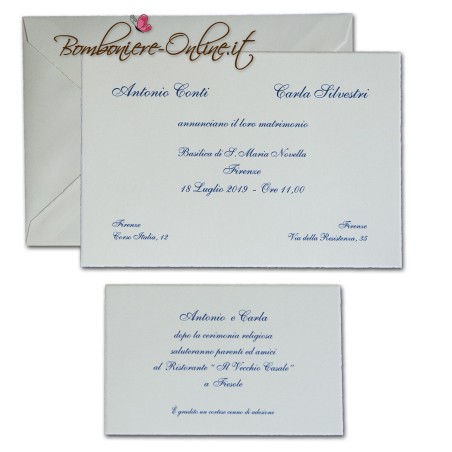 Bomboniere-Online.it
Antonio Conti Carla Silvestri
annunciano il loro matrimonio
Basilica di S. Maria Novella
Firenze
18 Luglio 2019 - Ore 11,00
Firenze
Corso Italia, 12
Firenze
Via della Resistenza, 35
Antonio e Carla
dopo la cerimonia religiosa
saluteranno parenti ed amici
al Ristorante " Il Vecchio Casale"
a Fiesole
È gradito un cortese cenno di adesione